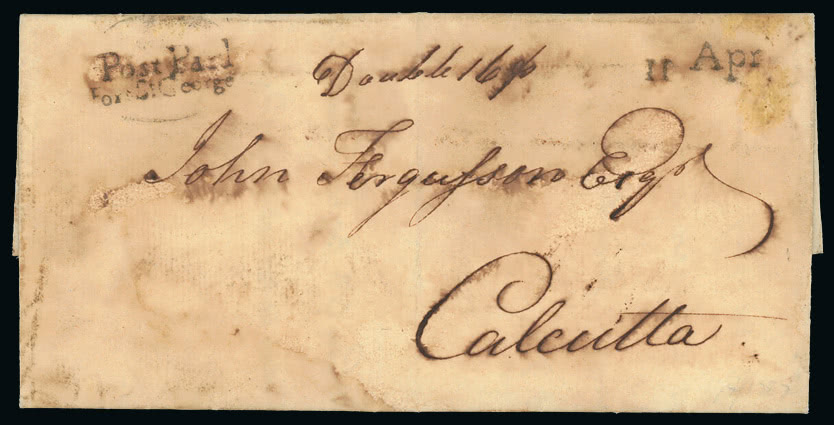 Post Paid
Fort St. George
Double 16
11 Apr
John Fergusson Esqr
Calcutta